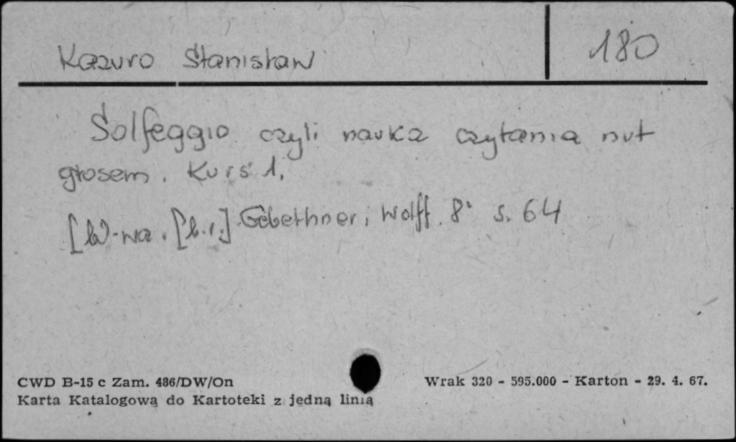 Kazuro Stanisław 180
Solfeggio czyli nauka czytania nut
głosem. Kurs 1.
[W-wa. [b.r.] Gebethner i Wolff. 8° s. 64
CWD B-15 c Zam. 486/DW/On Wrak 320 - 595.000 - Karton - 29. 4. 67.
Karta Katalogowa do Kartoteki z jedną linią